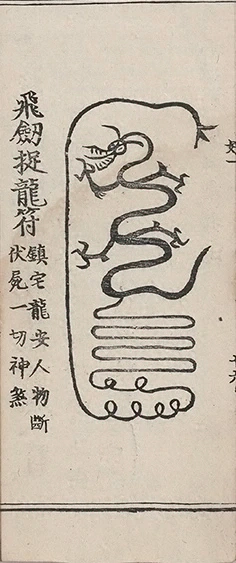 飛劒捉龍符
鎮宅龍安人物斷
伏屍一切神煞